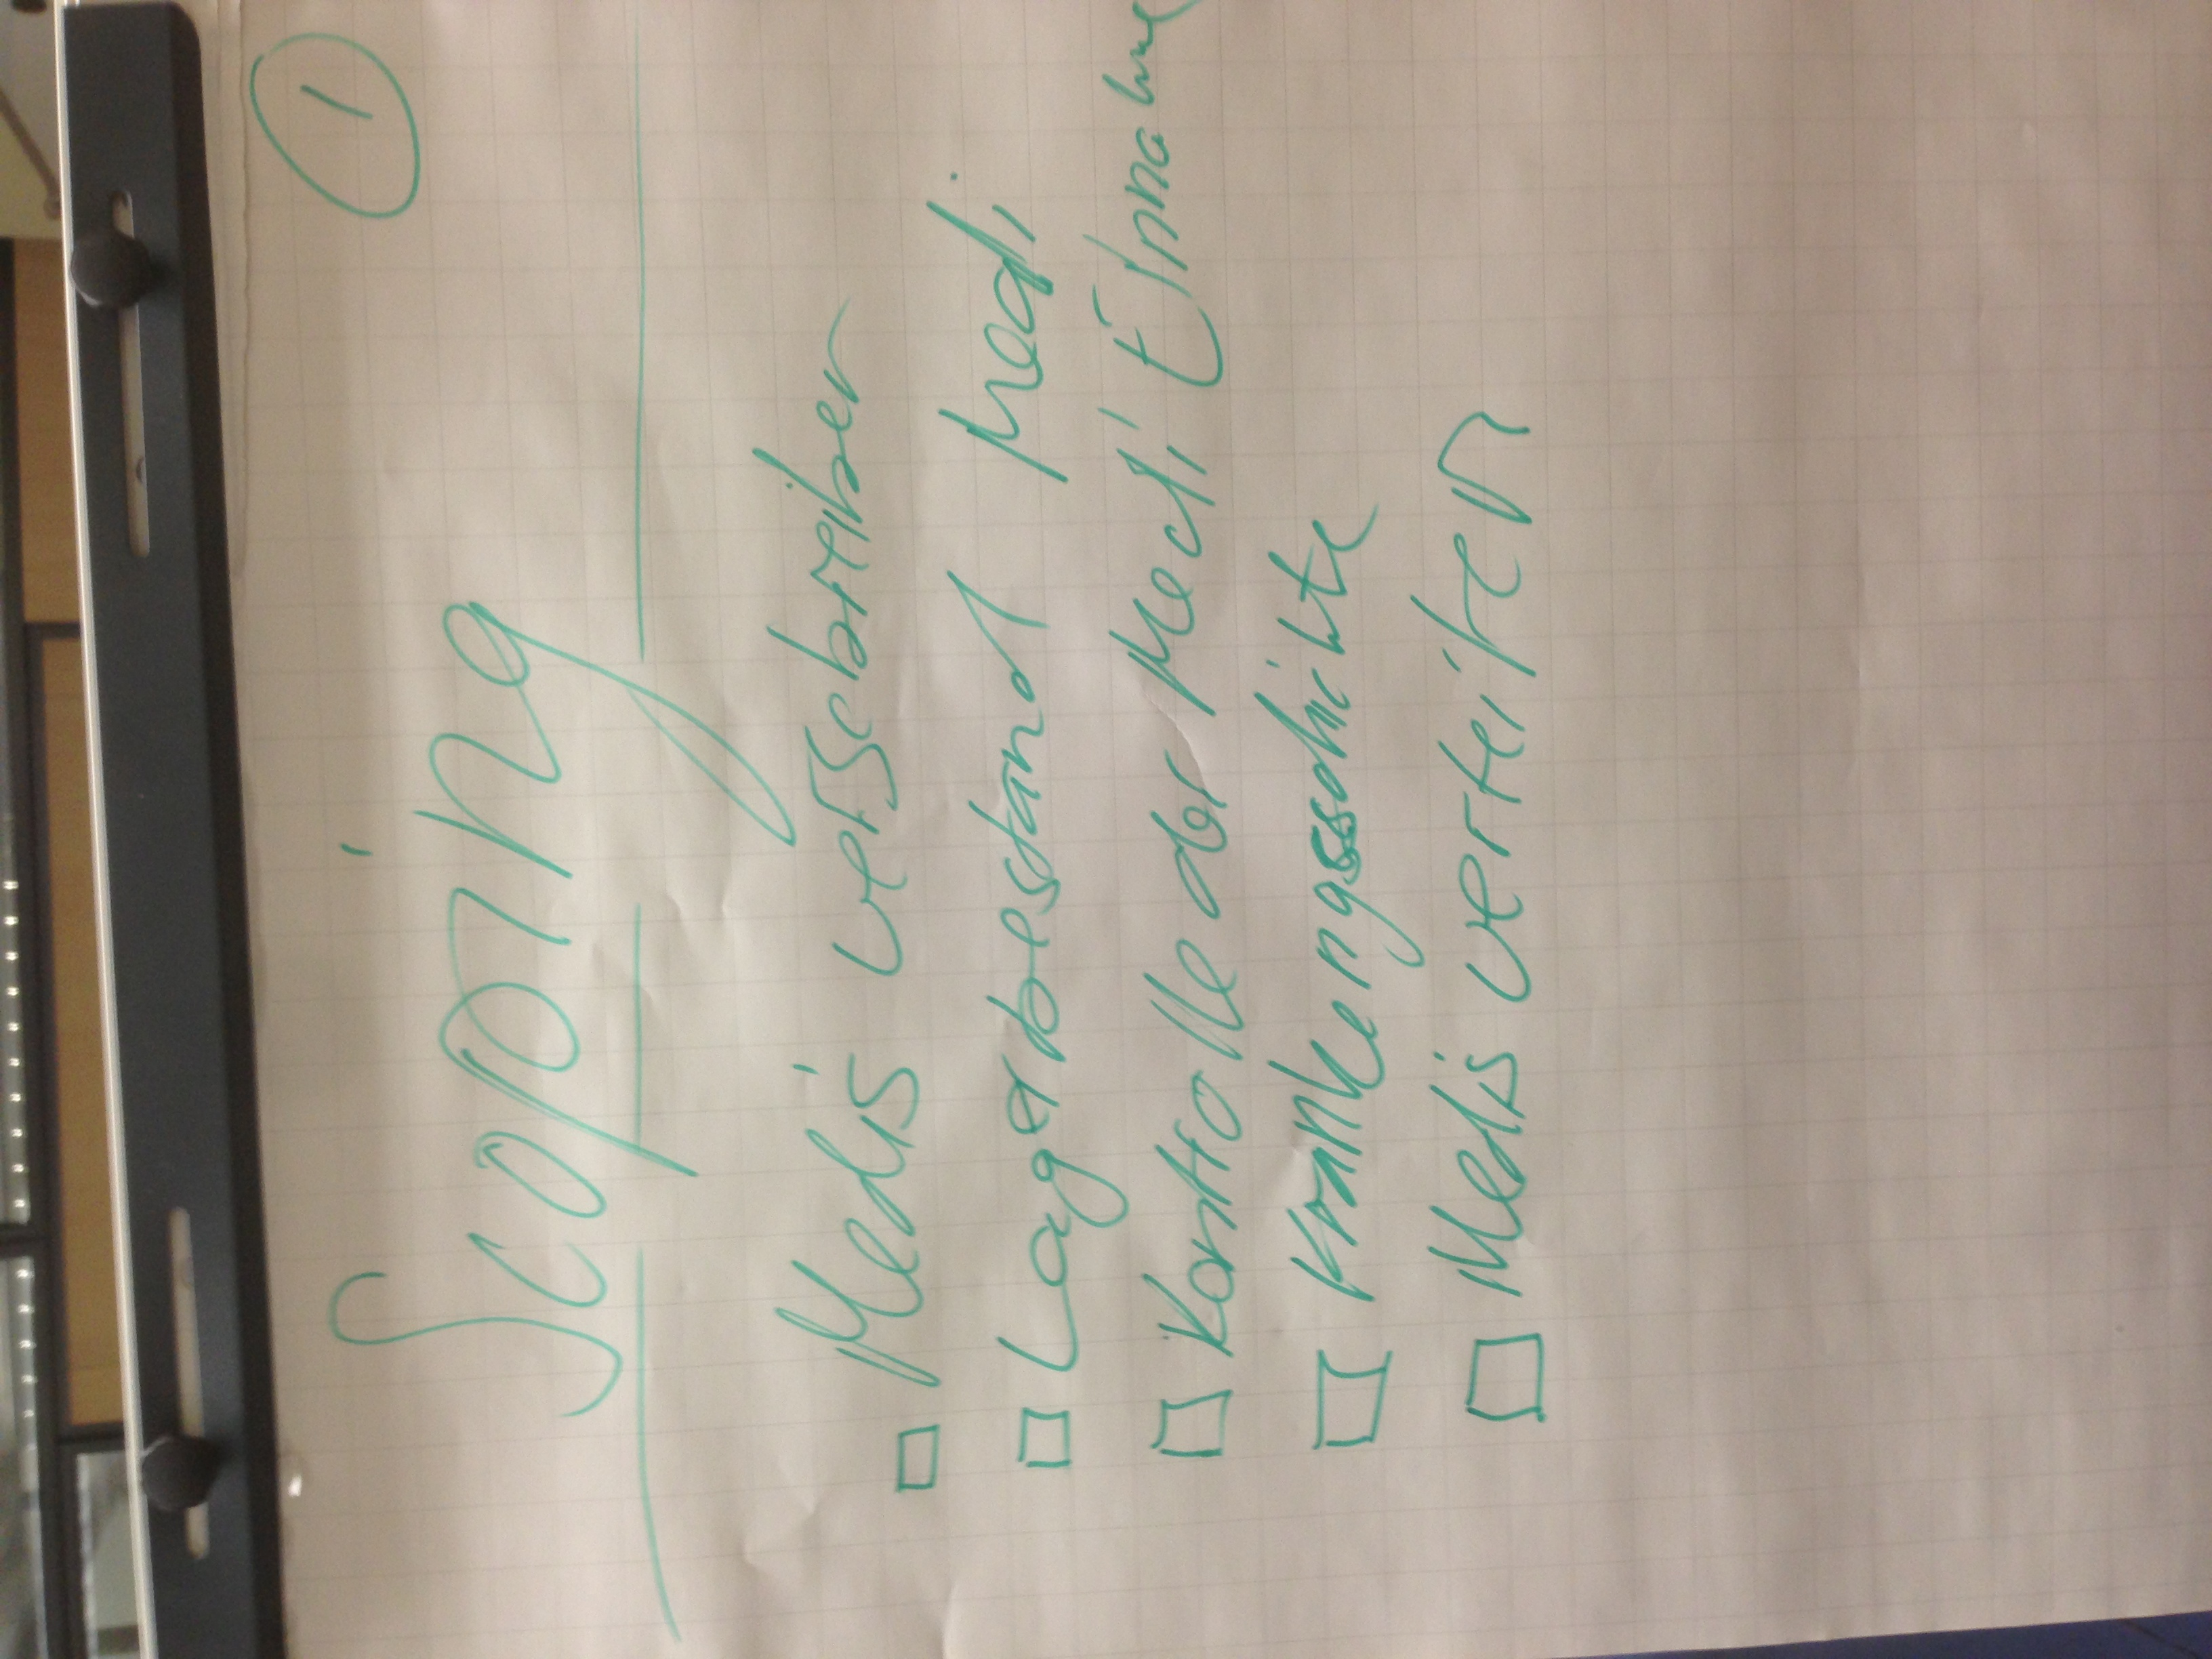 1
Scoping
Medis verschreiben
Lagerbestand Medi
Kontrolle der Medi Einnahme
Krankengsschichte
Medis verteilen